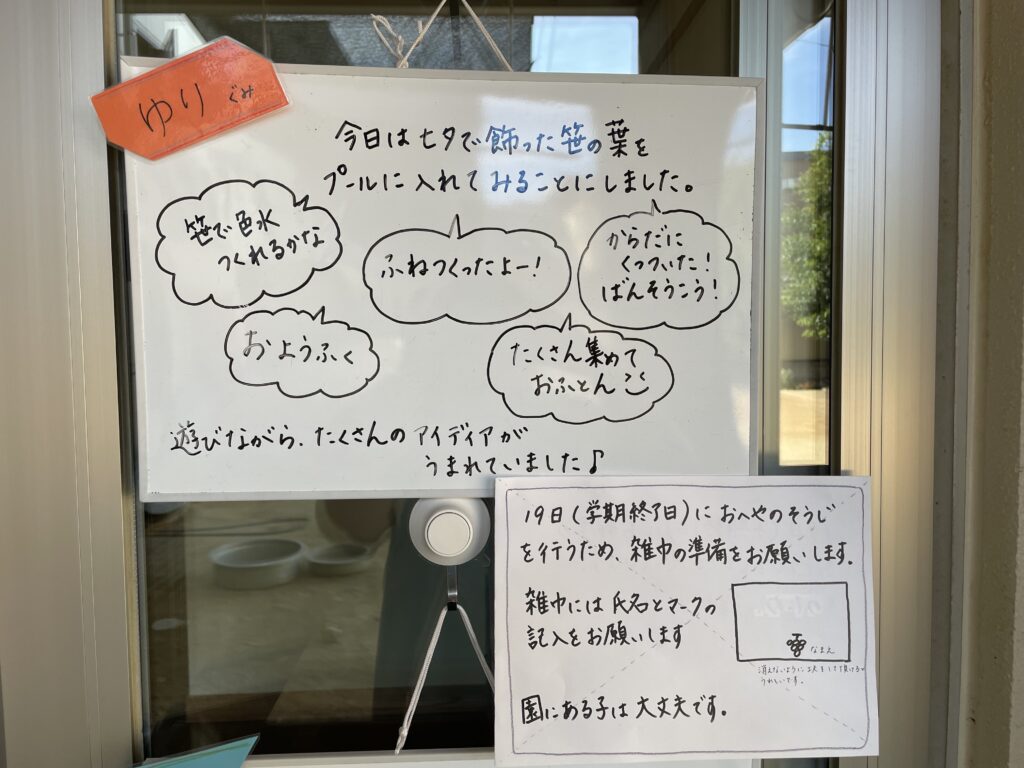 ゆり ぐみ
今日は七夕で飾った笹の葉を
プールに入れてみることにしました。
笹で色水
つくれるかな
ふねつくったよー!
からだに
くっついた!
ばんそうこう!
おようふく
たくさん集めて
おふとん
遊びながら、たくさんのアイディアが
うまれていました♪
19日(学期終了日)におへやのそうじ
を行うため、雑巾の準備をお願いします。
雑巾には氏名とマークの
記入をお願いします
なまえ
消えないように
うれしいです。
園にある子は大丈夫です。